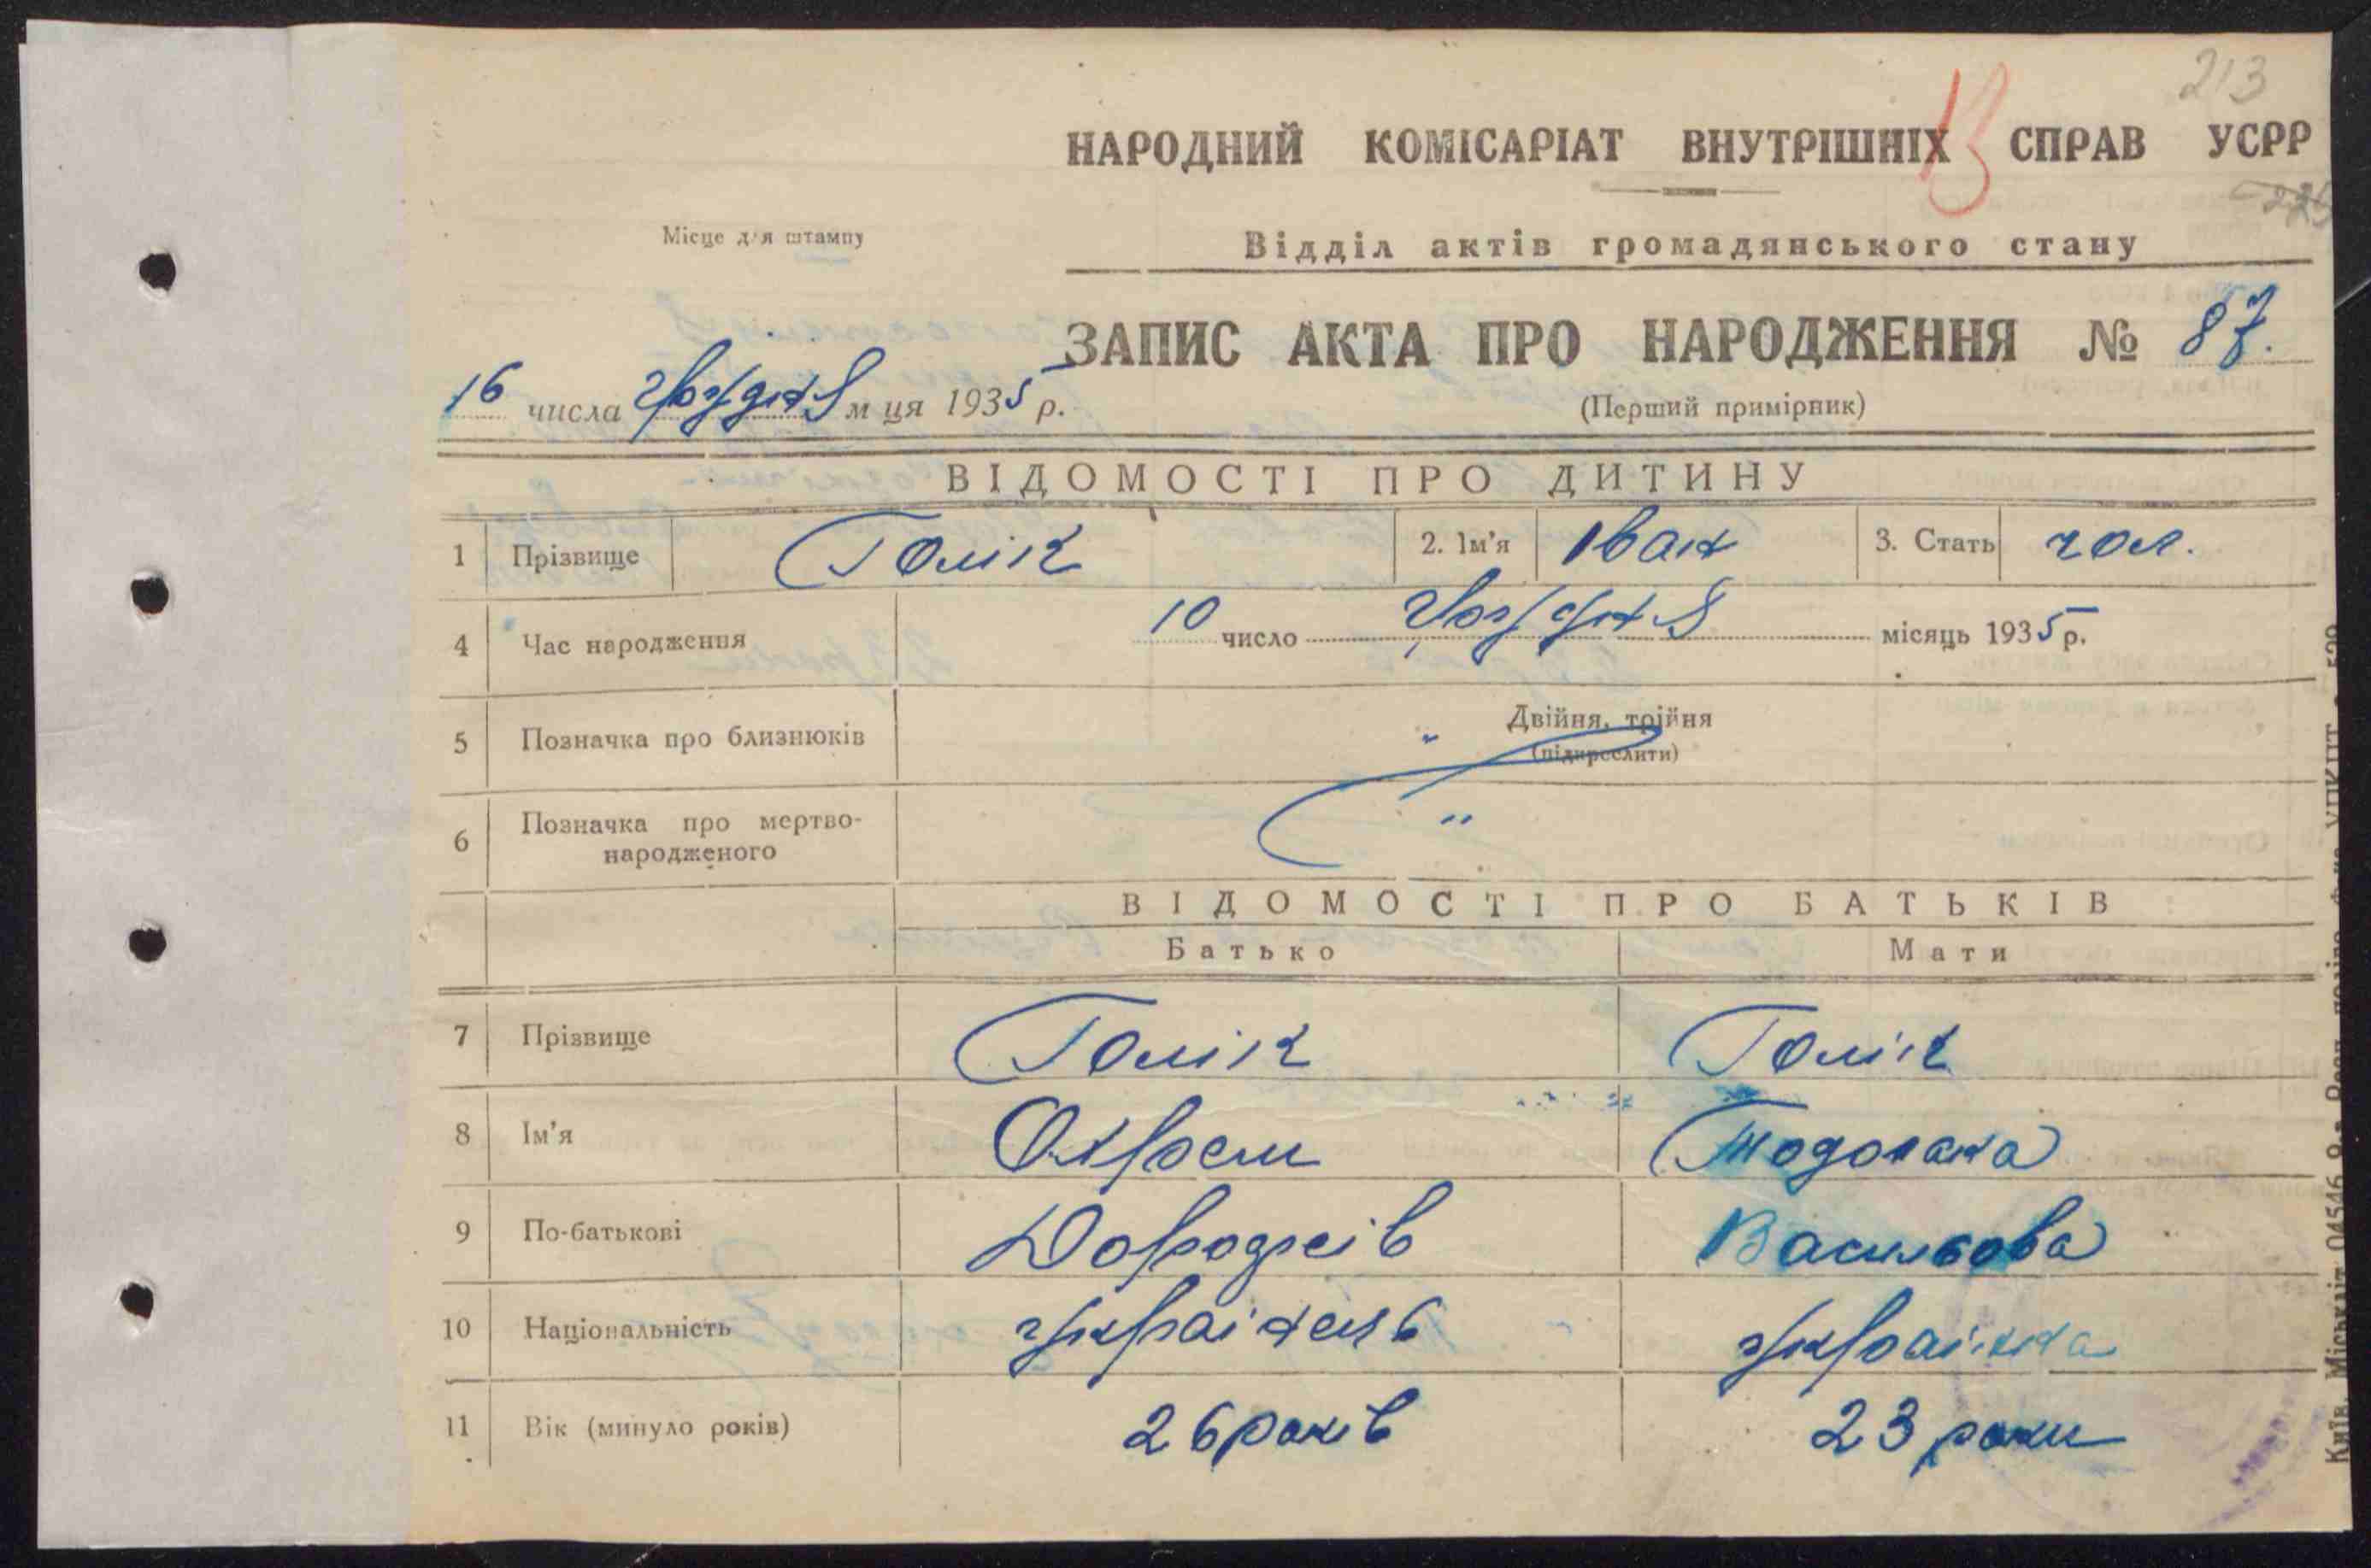 213
НАРОДНИЙ КОМІСАРІАТ ВНУТРІШНІХ СПРАВ УСРР
13
225
Місце для штампу
Відділ актів громадянського стану
ЗАПИС АКТА ПРО НАРОДЖЕННЯ № 87.
16 числа грудня м ця 1935 р.
(Перший примірник)
ВІДОМОСТІ ПРО ДИТИНУ
1 Прізвище Голік 2. Ім'я Іван 3. Стать чол.
4 Час народження 10 число грудня місяць 1935 р.
5 Позначка про близнюків Двійня, трійня
(підкреслити)
6 Позначка про мертво-
народженого
ВІДОМОСТІ ПРО БАТЬКІВ
Батько Мати
7 Прізвище Голік Голік
8 Ім'я Охрем Тодоска
9 По-батькові Дорофеів Васильова
10 Національність украінець украінка
11 Вік (минуло років) 26 років 23 роки